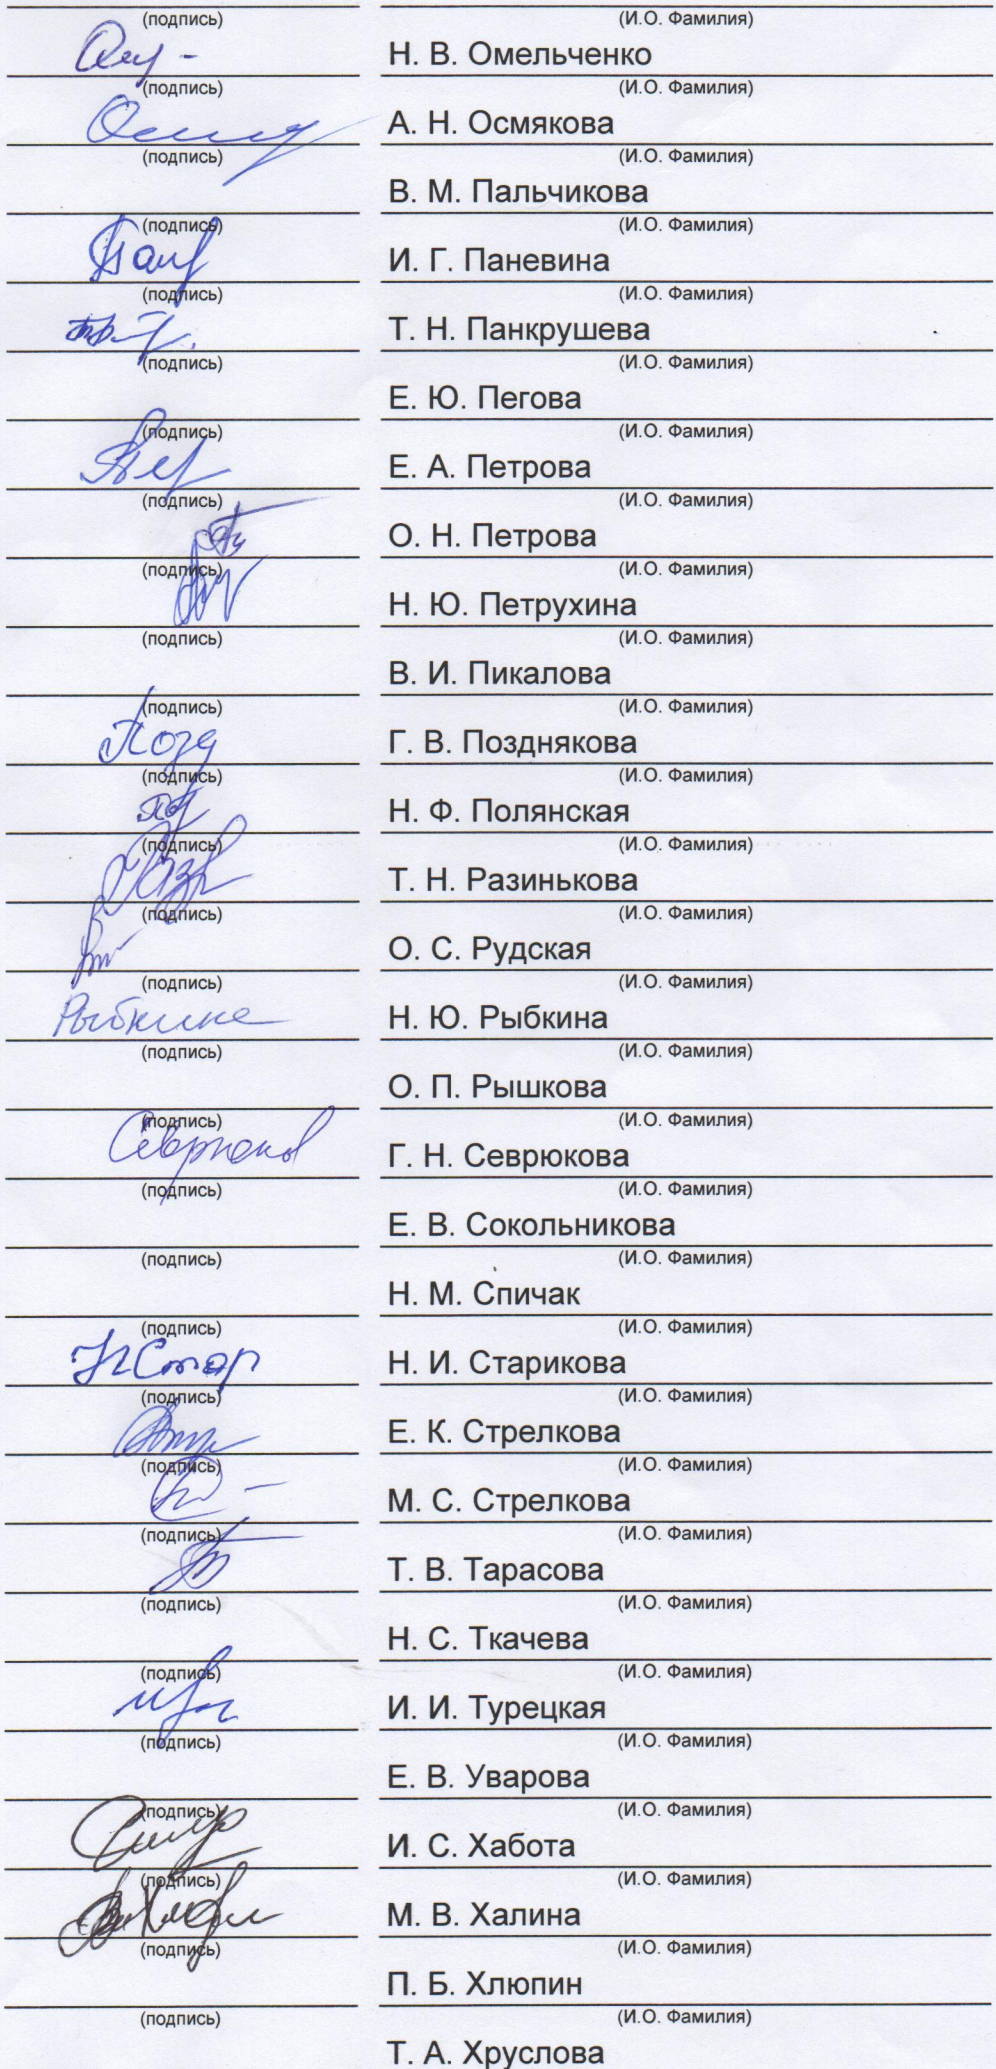 (подпись) (И.О. Фамилия)
Н. В. Омельченко
(подпись) (И.О. Фамилия)
А. Н. Осмякова
(подпись) (И.О. Фамилия)
В. М. Пальчикова
(подпись) (И.О. Фамилия)
И. Г. Паневина
(подпись) (И.О. Фамилия)
Т. Н. Панкрушева
(подпись) (И.О. Фамилия)
Е. Ю. Пегова
(подпись) (И.О. Фамилия)
Е. А. Петрова
(подпись) (И.О. Фамилия)
О. Н. Петрова
(подпись) (И.О. Фамилия)
Н. Ю. Петрухина
(подпись) (И.О. Фамилия)
В. И. Пикалова
(подпись) (И.О. Фамилия)
Г. В. Позднякова
(подпись) (И.О. Фамилия)
Н. Ф. Полянская
(подпись) (И.О. Фамилия)
Т. Н. Разинькова
(подпись) (И.О. Фамилия)
О. С. Рудская
(подпись) (И.О. Фамилия)
Рыбкина Н. Ю. Рыбкина
(подпись) (И.О. Фамилия)
О. П. Рышкова
(подпись) (И.О. Фамилия)
Г. Н. Севрюкова
(подпись) (И.О. Фамилия)
Е. В. Сокольникова
(подпись) (И.О. Фамилия)
Н. М. Спичак
(подпись) (И.О. Фамилия)
Н. И. Старикова
(подпись) (И.О. Фамилия)
Е. К. Стрелкова
(подпись) (И.О. Фамилия)
М. С. Стрелкова
(подпись) (И.О. Фамилия)
Т. В. Тарасова
(подпись) (И.О. Фамилия)
Н. С. Ткачева
(подпись) (И.О. Фамилия)
И. И. Турецкая
(подпись) (И.О. Фамилия)
Е. В. Уварова
(подпись) (И.О. Фамилия)
И. С. Хабота
(подпись) (И.О. Фамилия)
М. В. Халина
(подпись) (И.О. Фамилия)
П. Б. Хлюпин
(подпись) (И.О. Фамилия)
Т. А. Хруслова